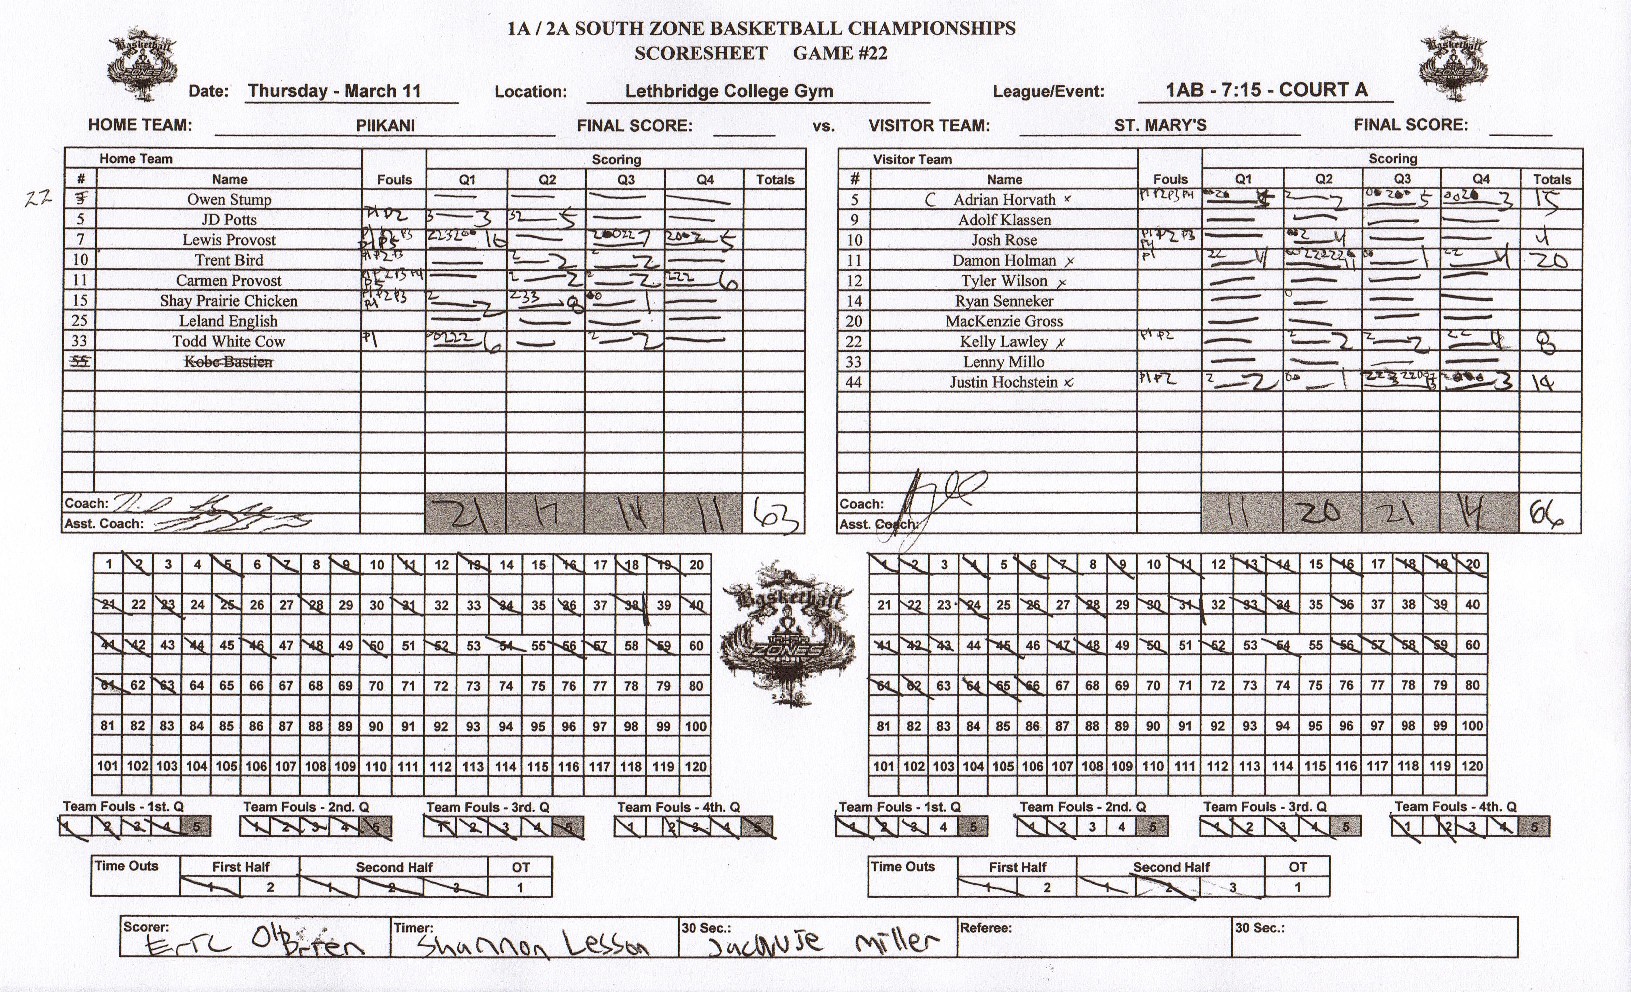 1A / 2A SOUTH ZONE BASKETBALL CHAMPIONSHIPS
SCORESHEET GAME #22
Date: Thursday - March 11 Location: Lethbridge College Gym League/Event: 1AB - 7:15 - COURT A
HOME TEAM: PIIKANI FINAL SCORE: vs. VISITOR TEAM: ST. MARY'S FINAL SCORE:
Home Team Scoring
# Name Fouls Q1 Q2 Q3 Q4 Totals
22 Owen Stump
5 JD Potts P1 P2 3 3 32 5
7 Lewis Provost P1 P2 P3 P5 16 7 5
10 Trent Bird P1 P2 P3 2 2 2 2
11 Carmen Provost P1 P2 P3 P4 P5 2 2 2 2 222 6
15 Shay Prairie Chicken P1 P2 P3 P4 2 2 233 8 00 1
25 Leland English
33 Todd White Cow P1 6 2 2
55 Kobe Bastien
Coach: 21 17 14 11 63
Asst. Coach:
Visitor Team Scoring
# Name Fouls Q1 Q2 Q3 Q4 Totals
5 C Adrian Horvath x P1 P2 P3 P4 2 2 5 3 15
9 Adolf Klassen
10 Josh Rose P1 P2 P3 P4 4 4
11 Damon Holman x P1 22 4 11 00 1 22 4 20
12 Tyler Wilson x
14 Ryan Senneker
20 MacKenzie Gross
22 Kelly Lawley x P1 P2 2 2 2 2 22 4 8
33 Lenny Millo
44 Justin Hochstein x P1 P2 2 2 00 1 3 14
Coach: 11 20 21 14 66
Asst. Coach:
1 2 3 4 5 6 7 8 9 10 11 12 13 14 15 16 17 18 19 20
21 22 23 24 25 26 27 28 29 30 31 32 33 34 35 36 37 38 39 40
41 42 43 44 45 46 47 48 49 50 51 52 53 54 55 56 57 58 59 60
61 62 63 64 65 66 67 68 69 70 71 72 73 74 75 76 77 78 79 80
81 82 83 84 85 86 87 88 89 90 91 92 93 94 95 96 97 98 99 100
101 102 103 104 105 106 107 108 109 110 111 112 113 114 115 116 117 118 119 120
Basketball
ZONES
1 2 3 4 5 6 7 8 9 10 11 12 13 14 15 16 17 18 19 20
21 22 23 24 25 26 27 28 29 30 31 32 33 34 35 36 37 38 39 40
41 42 43 44 45 46 47 48 49 50 51 52 53 54 55 56 57 58 59 60
61 62 63 64 65 66 67 68 69 70 71 72 73 74 75 76 77 78 79 80
81 82 83 84 85 86 87 88 89 90 91 92 93 94 95 96 97 98 99 100
101 102 103 104 105 106 107 108 109 110 111 112 113 114 115 116 117 118 119 120
Team Fouls - 1st. Q Team Fouls - 2nd. Q Team Fouls - 3rd. Q Team Fouls - 4th. Q
1 2 3 4 5 1 2 3 4 5 1 2 3 4 5 1 2 3 4 5
Team Fouls - 1st. Q Team Fouls - 2nd. Q Team Fouls - 3rd. Q Team Fouls - 4th. Q
1 2 3 4 5 1 2 3 4 5 1 2 3 4 5 1 2 3 4 5
Time Outs First Half Second Half OT
1 2 1 2 3 1
Time Outs First Half Second Half OT
1 2 1 2 3 1
Scorer: Eric O'Brien Timer: Shannon Lesson 30 Sec.: Miller Referee: 30 Sec.: